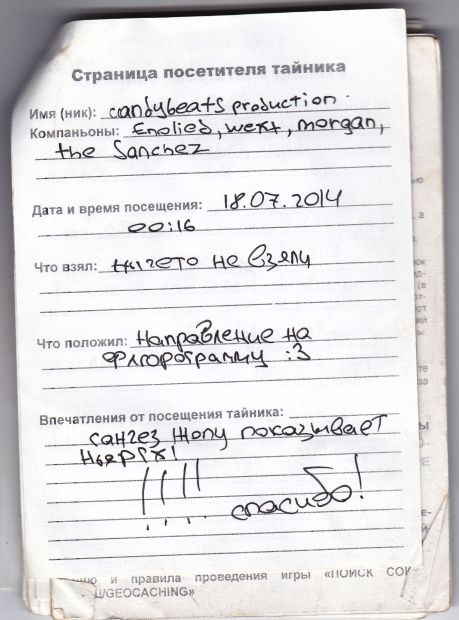 Страница посетителя тайника
Имя (ник): candybeats production.
Компаньоны: Enolied, wext, morgan,
the Sanchez
Дата и время посещения: 18.07.2014
00:16
Что взял: ничего не взяли
Что положил: направление на
флюрограмму :3
Впечатления от посещения тайника:
санчез жопу показывает
!!!! спасибо!
и правила проведения игры «ПОИСК СОК-
/GEOCACHING»